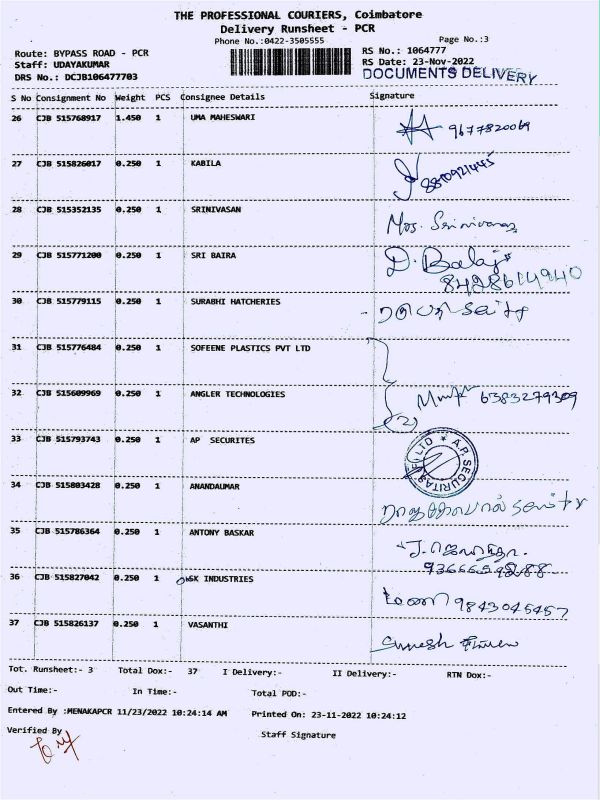 THE PROFESSIONAL COURIERS, Coimbatore
Delivery Runsheet - PCR
Phone No.:0422-3505555
Page No.:3
Route: BYPASS ROAD - PCR
RS No.: 1064777
Staff: UDAYAKUMAR
RS Date: 23-Nov-2022
DRS No.: DCJB106477703
DOCUMENTS DELIVERY
S No Consignment No Weight PCS Consignee Details Signature
26 CJB 515768917 1.450 1 UMA MAHESWARI 9677820069
27 CJB 515826017 0.250 1 KABILA
28 CJB 515352135 0.250 1 SRINIVASAN
29 CJB 515771200 0.250 1 SRI BAIRA D. Balaji
8428614940
30 CJB 515779115 0.250 1 SURABHI HATCHERIES
31 CJB 515776484 0.250 1 SOFEENE PLASTICS PVT LTD
32 CJB 515609969 0.250 1 ANGLER TECHNOLOGIES 6383279309
(2)
33 CJB 515793743 0.250 1 AP SECURITES A.P. SECURITAS (P) LTD
34 CJB 515803428 0.250 1 ANANDAUMAR
35 CJB 515786364 0.250 1 ANTONY BASKAR
36 CJB 515827042 0.250 1 SK INDUSTRIES 9843045457
37 CJB 515826137 0.250 1 VASANTHI
Tot. Runsheet:- 3 Total Dox:- 37 I Delivery:- II Delivery:- RTN Dox:-
Out Time:- In Time:- Total POD:-
Entered By :MENAKAPCR 11/23/2022 10:24:14 AM Printed On: 23-11-2022 10:24:12
Verified By
Staff Signature